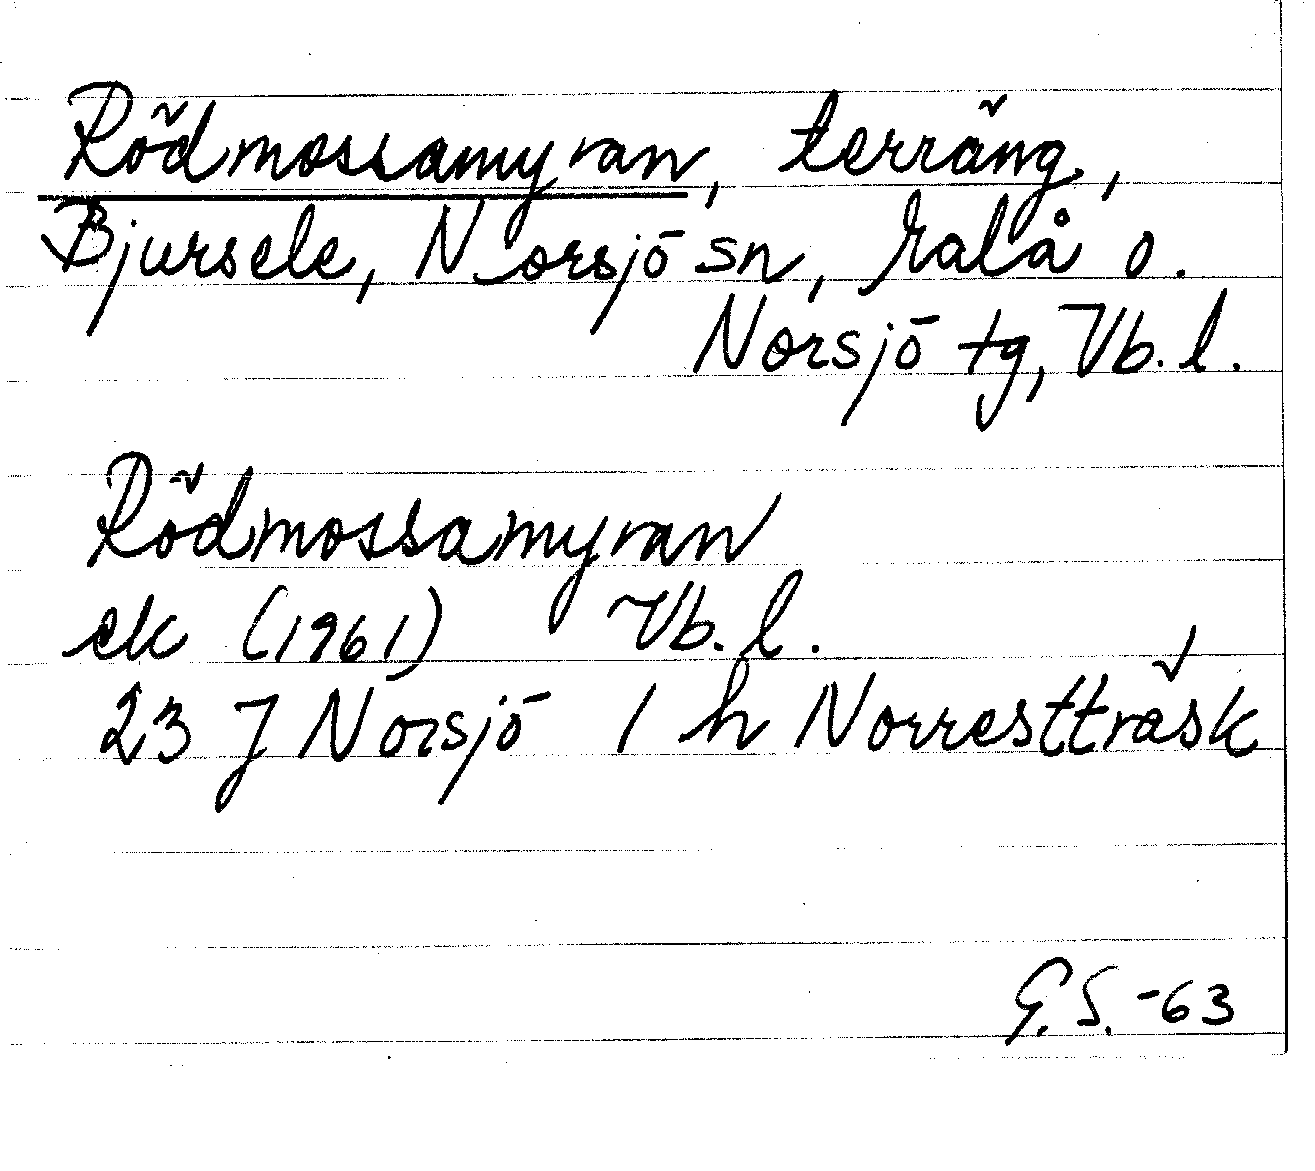 Rödmossamyran, terräng,
Bjursele, Norsjö sn, Malå o.
Norsjö tg, Vb. l.
Rödmossamyran
ek (1961) Vb. l.
23 J Norsjö 1 h Norrestträsk
G. S. -63